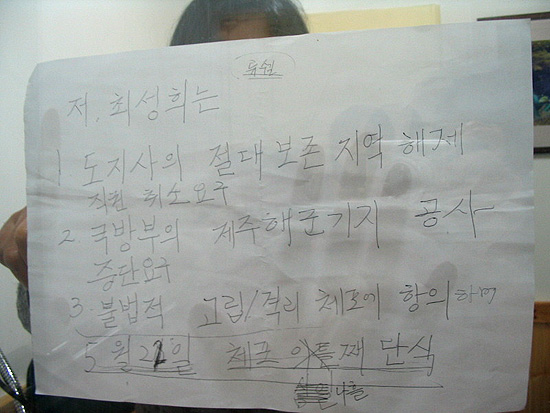 특쉰
저, 최성희는
1. 도지사의 절대보존지역 해제
직권 취소요구
2. 국방부의 제주해군기지 공사
중단요구
3. 불법적 고립/격리 체포에 항의하며
5월 21일 체포 이틀째 단식
나흘